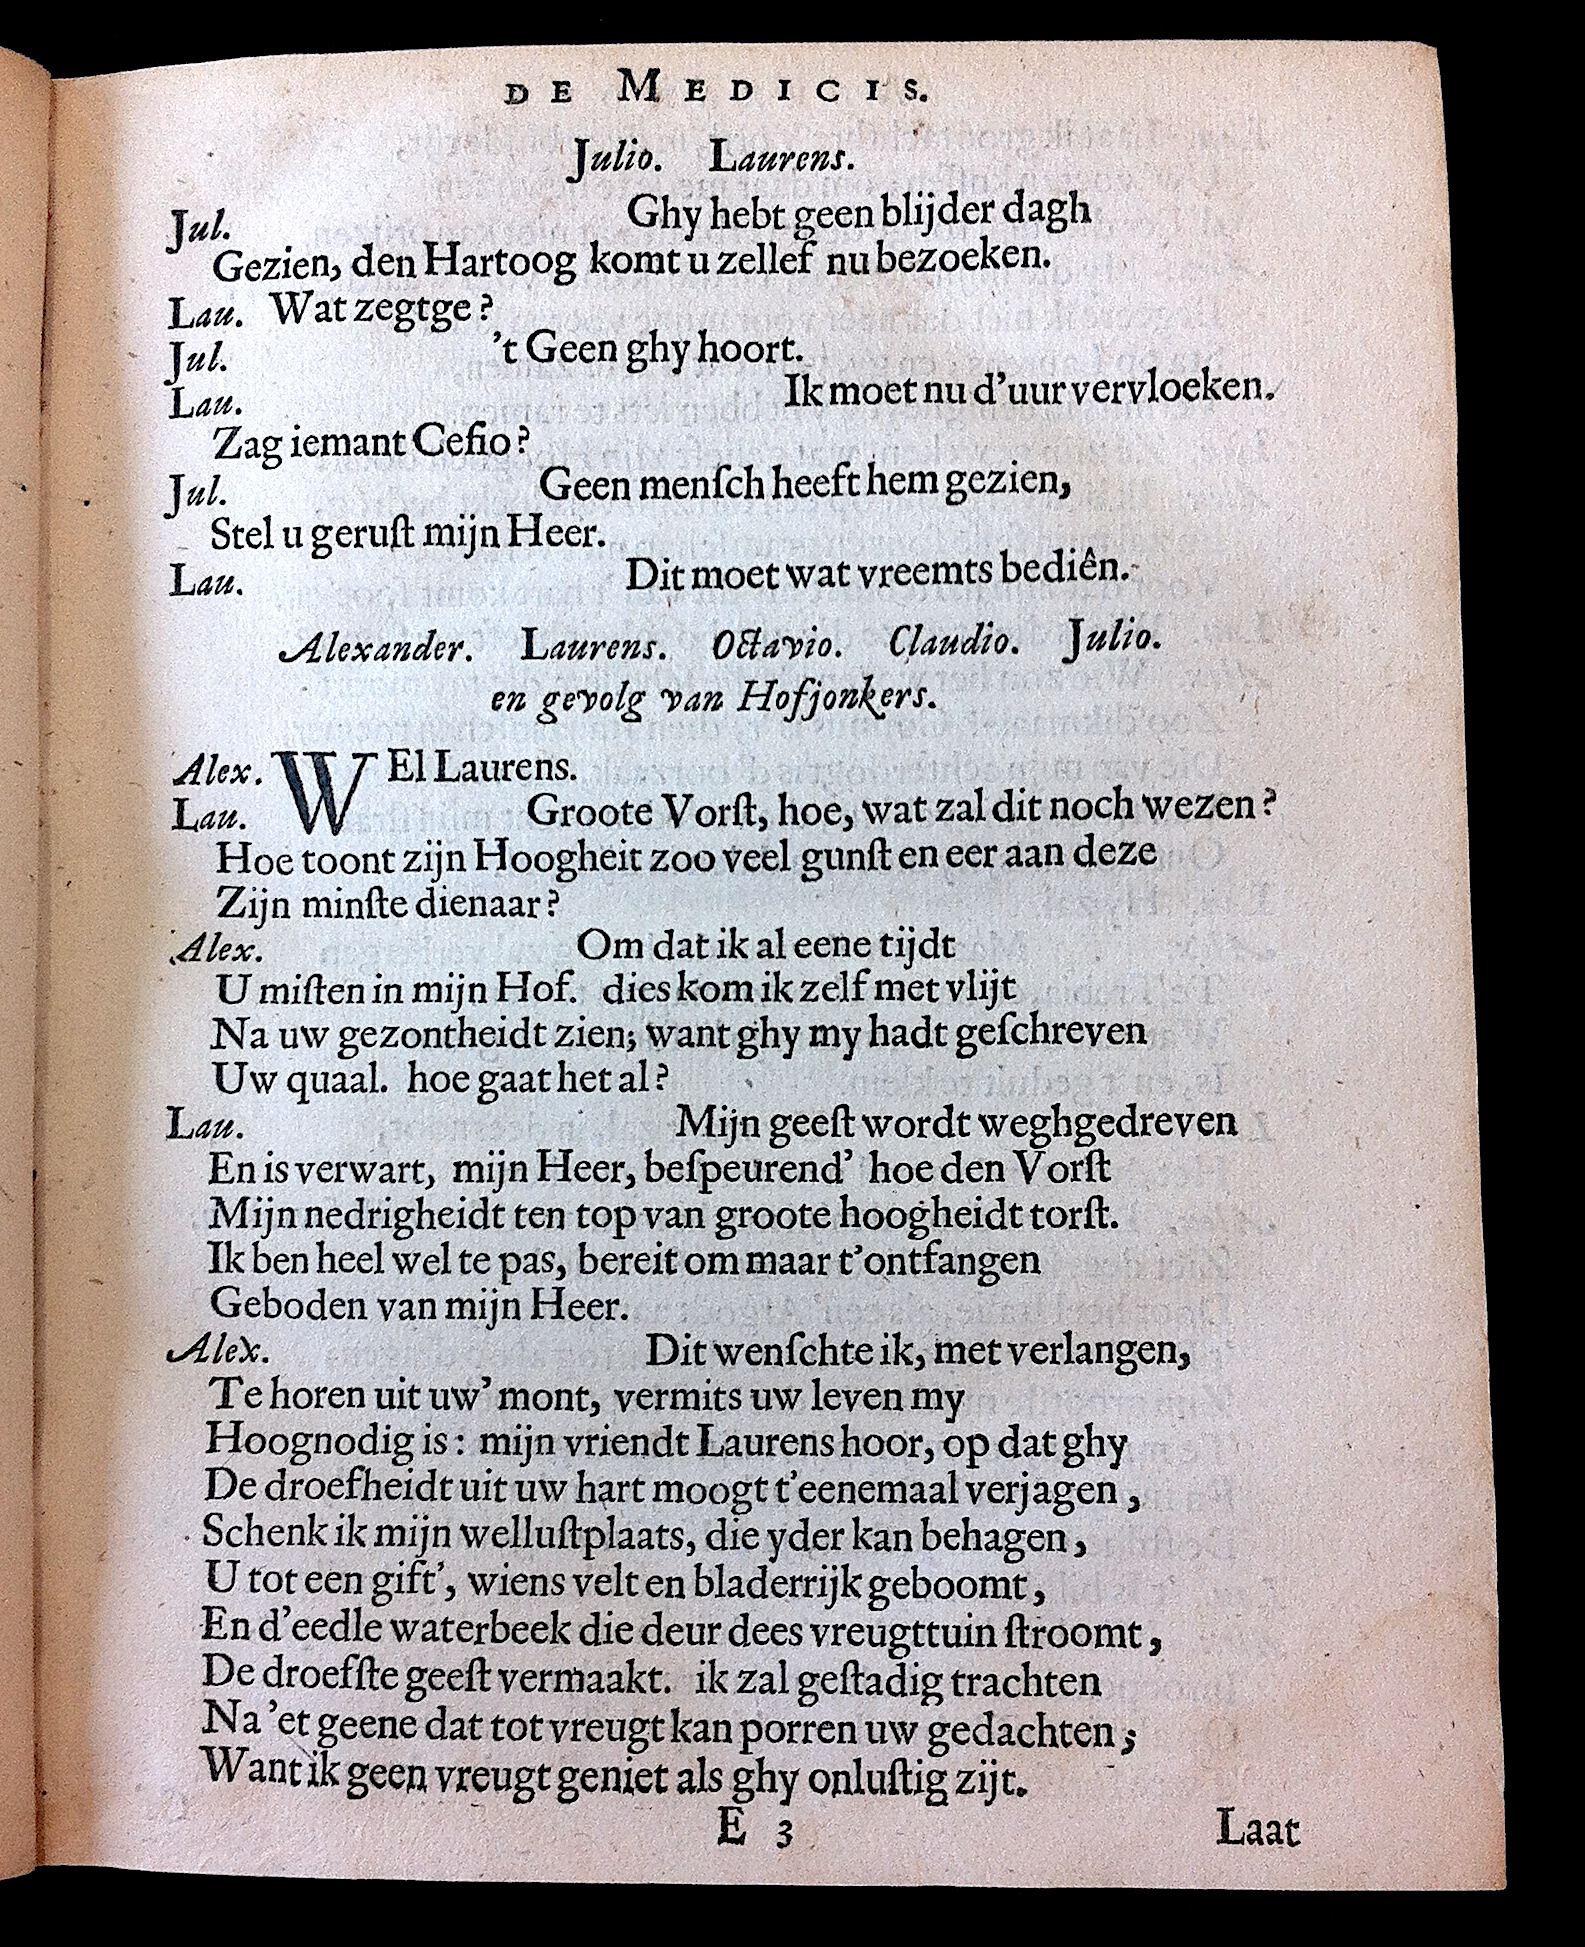 DE MEDICIS.
Julio. Laurens.
Jul. Ghy hebt geen blijder dagh
Gezien, den Hartoog komt u zellef nu bezoeken.
Lau. Wat zegtge?
Jul. 't Geen ghy hoort.
Lau. Ik moet nu d'uur vervloeken.
Zag iemant Cefio?
Jul. Geen menſch heeft hem gezien,
Stel u geruſt mijn Heer.
Lau. Dit moet wat vreemts bediên.
Alexander. Laurens. Octavio. Claudio. Julio.
en gevolg van Hofjonkers.
Alex. WEl Laurens.
Lau. Groote Vorſt, hoe, wat zal dit noch wezen?
Hoe toont zijn Hoogheit zoo veel gunſt en eer aan deze
Zijn minſte dienaar?
Alex. Om dat ik al eene tijdt
U miſten in mijn Hof. dies kom ik zelf met vlijt
Na uw gezontheidt zien; want ghy my hadt geſchreven
Uw quaal. hoe gaat het al?
Lau. Mijn geeſt wordt weghgedreven
En is verwart, mijn Heer, beſpeurend' hoe den Vorſt
Mijn nedrigheidt ten top van groote hoogheidt torſt.
Ik ben heel wel te pas, bereit om maar t'ontfangen
Geboden van mijn Heer.
Alex. Dit wenſchte ik, met verlangen,
Te horen uit uw' mont, vermits uw leven my
Hoognodig is: mijn vriendt Laurens hoor, op dat ghy
De droefheidt uit uw hart moogt t'eenemaal verjagen,
Schenk ik mijn welluſtplaats, die yder kan behagen,
U tot een gift', wiens velt en bladerrijk geboomt,
En d'eedle waterbeek die deur dees vreugttuin ſtroomt,
De droefſte geeſt vermaakt. ik zal geſtadig trachten
Na 'et geene dat tot vreugt kan porren uw gedachten;
Want ik geen vreugt geniet als ghy onluſtig zijt.
E 3 Laat